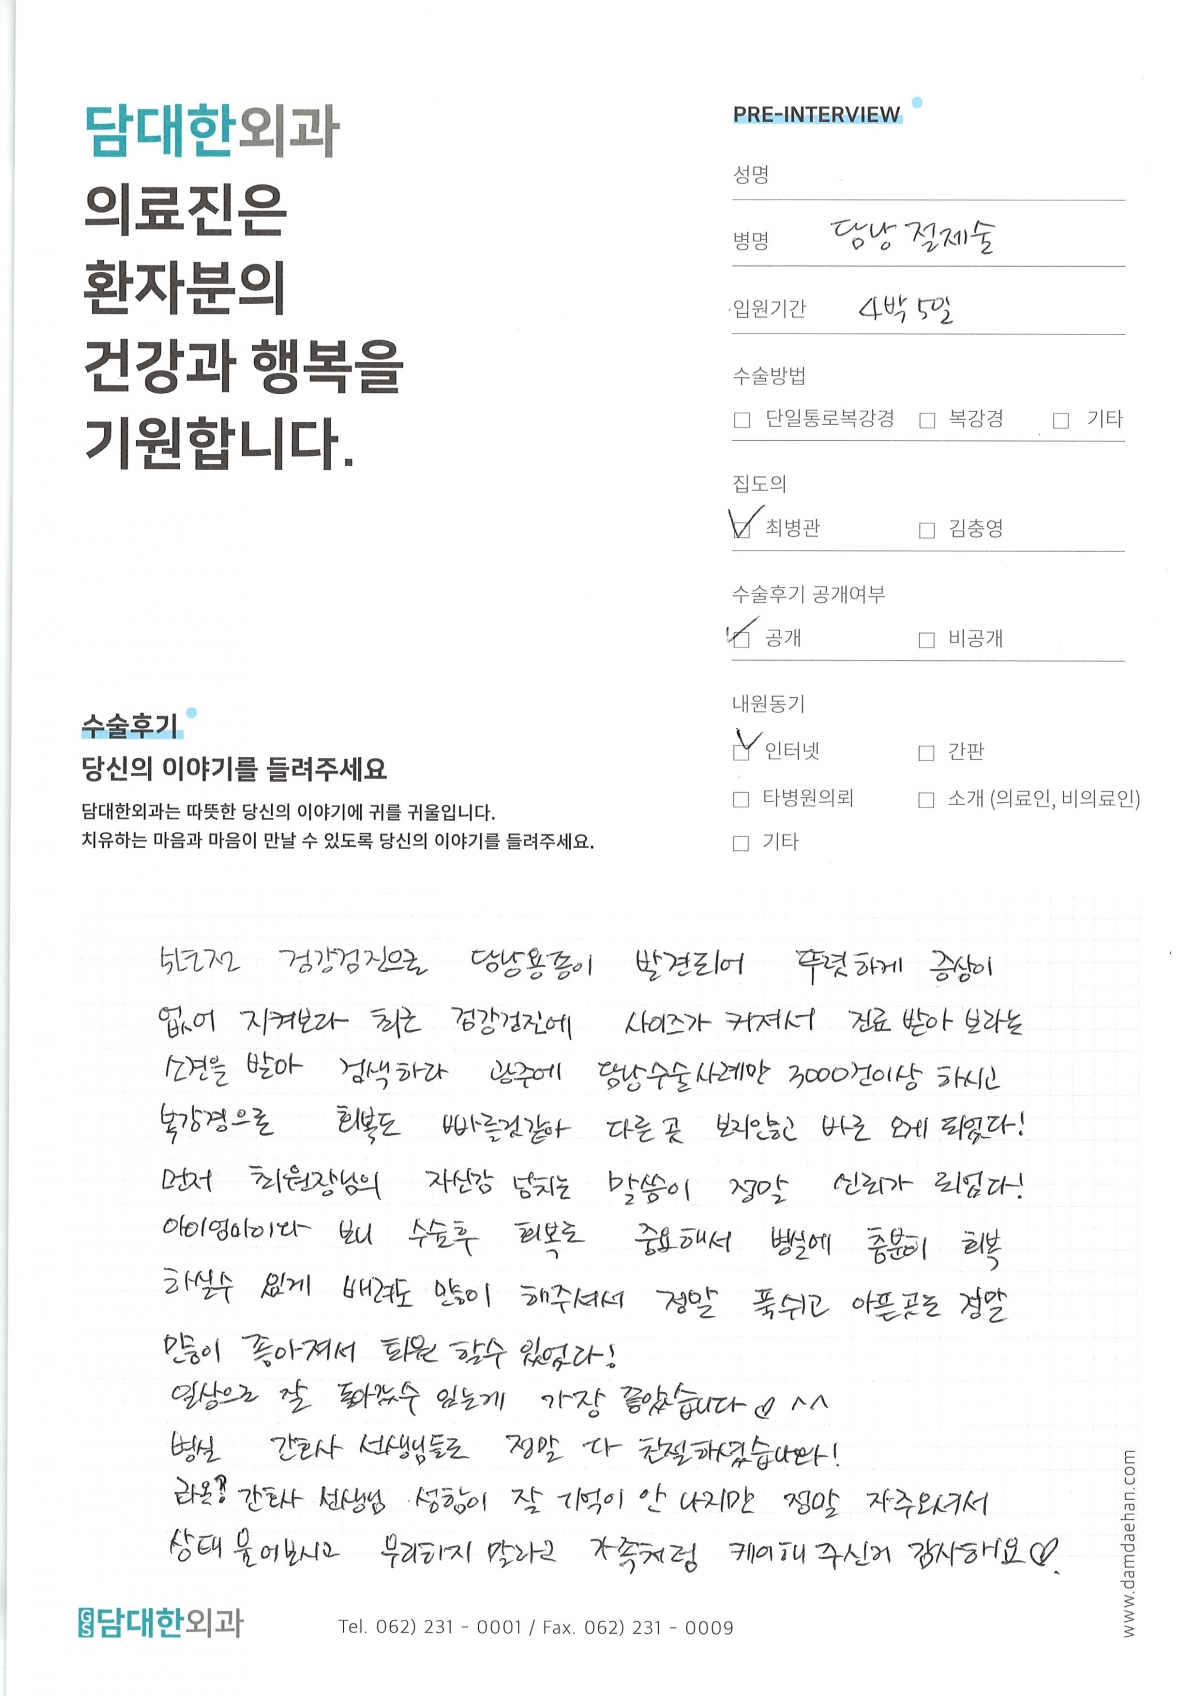 담대한외과
의료진은
환자분의
건강과 행복을
기원합니다.
PRE-INTERVIEW
성명
병명 담낭 절제술
입원기간 4박 5일
수술방법
□ 단일통로복강경 □ 복강경 □ 기타
집도의
☑ 최병관 □ 김충영
수술후기 공개여부
☑ 공개 □ 비공개
내원동기
☑ 인터넷 □ 간판
□ 타병원의뢰 □ 소개 (의료인, 비의료인)
□ 기타
수술후기
당신의 이야기를 들려주세요
담대한외과는 따뜻한 당신의 이야기에 귀를 귀울입니다.
치유하는 마음과 마음이 만날 수 있도록 당신의 이야기를 들려주세요.
5년전 검강검진으로 담낭용종이 발견되어 뚜렷하게 증상이
없어 지켜보다 최근 검강검진에 사이즈가 커져서 진료 받아 보라는
소견을 받아 검색하다 광주에 담낭수술사례만 3000건이상 하시고
복강경으로 회복도 빠를것같아 다른 곳 보지않고 바로 오게 되었다!
먼저 최원장님의 자신감 넘치는 말씀이 정말 신뢰가 되었다!
아이엄마이다 보니 수술후 회복도 중요해서 병실에 충분히 회복
하실수 있게 배려도 많이 해주셔서 정말 푹쉬고 아픈곳는 정말
많이 좋아져서 퇴원 할수 있었다!
일상으로 잘 돌아갈수 있는게 가장 좋았습니다♡ ^^
병실 간호사 선생님들도 정말 다 친절하셨습니다!
라온? 간호사 선생님 성함이 잘 기억이 안 나지만 정말 자주오셔서
상태 물어보시고 무리하지 말라고 가족처럼 케어해 주신거 감사해요♡.
GS 담대한외과
Tel. 062) 231 - 0001 / Fax. 062) 231 - 0009
www.damdaehan.com